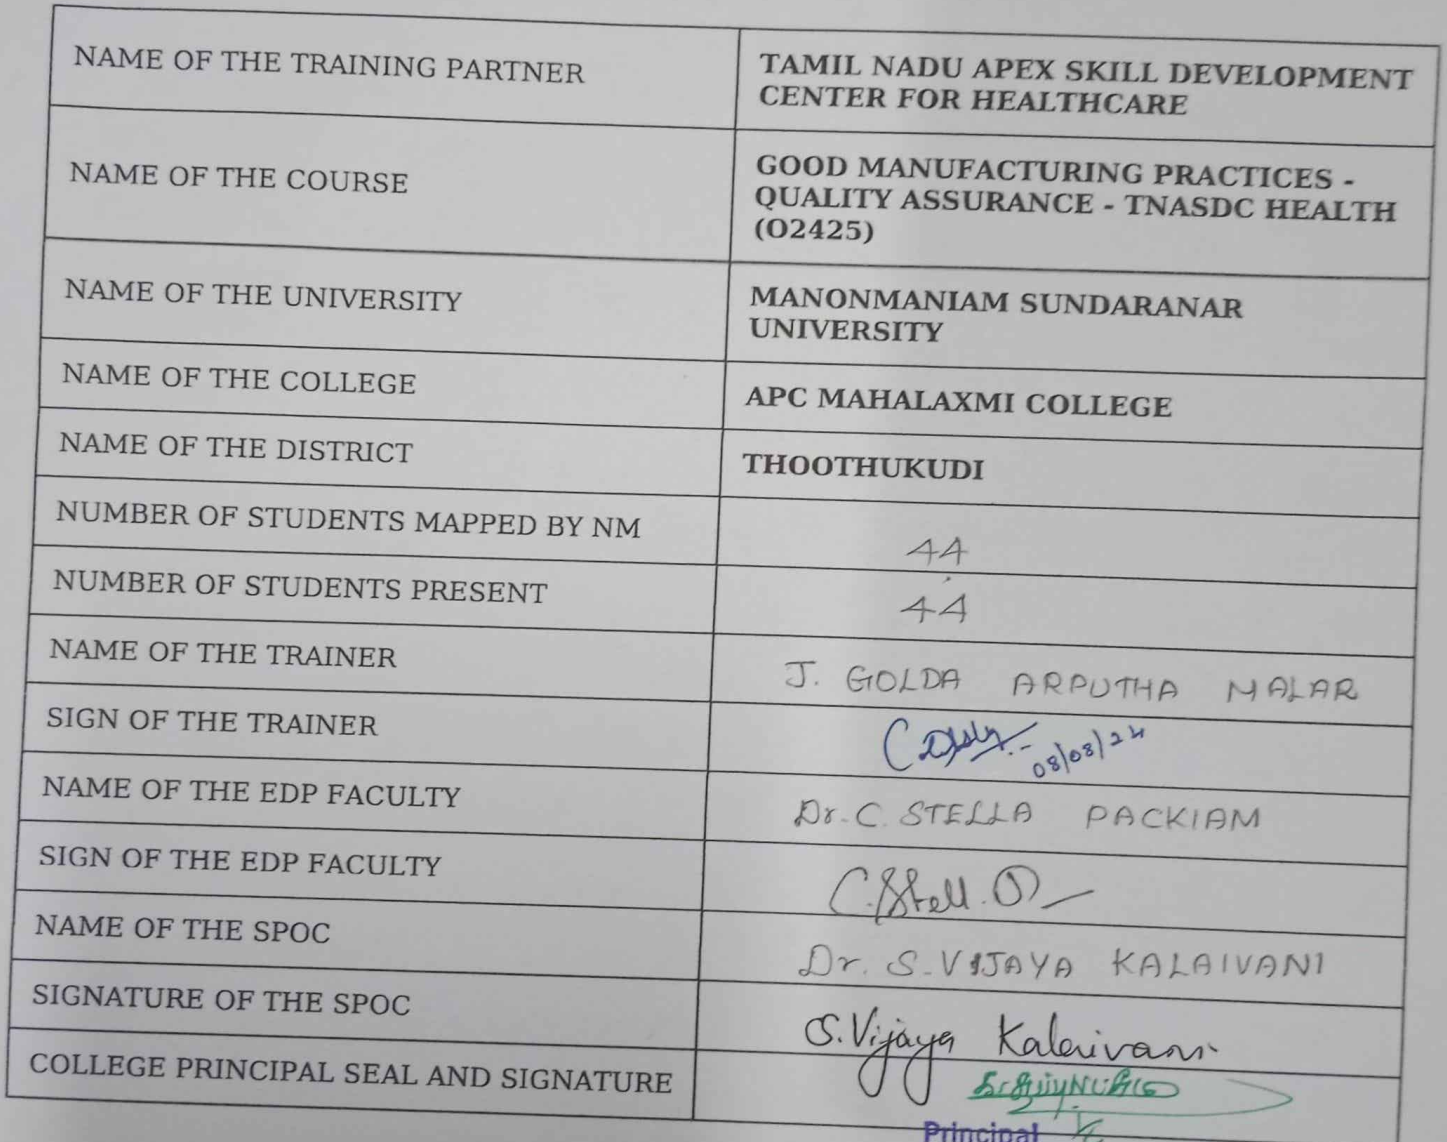 NAME OF THE TRAINING PARTNER
TAMIL NADU APEX SKILL DEVELOPMENT
CENTER FOR HEALTHCARE
NAME OF THE COURSE
GOOD MANUFACTURING PRACTICES -
QUALITY ASSURANCE - TNASDC HEALTH
(O2425)
NAME OF THE UNIVERSITY
MANONMANIAM SUNDARANAR
UNIVERSITY
NAME OF THE COLLEGE
APC MAHALAXMI COLLEGE
NAME OF THE DISTRICT
THOOTHUKUDI
NUMBER OF STUDENTS MAPPED BY NM
44
NUMBER OF STUDENTS PRESENT
44
NAME OF THE TRAINER
J. GOLDA ARPUTHA MALAR
SIGN OF THE TRAINER
08/08/24
NAME OF THE EDP FACULTY
Dr. C. STELLA PACKIAM
SIGN OF THE EDP FACULTY
C. Stell.
NAME OF THE SPOC
Dr. S. VIJAYA KALAIVANI
SIGNATURE OF THE SPOC
S. Vijaya Kalaivani
COLLEGE PRINCIPAL SEAL AND SIGNATURE
Principal